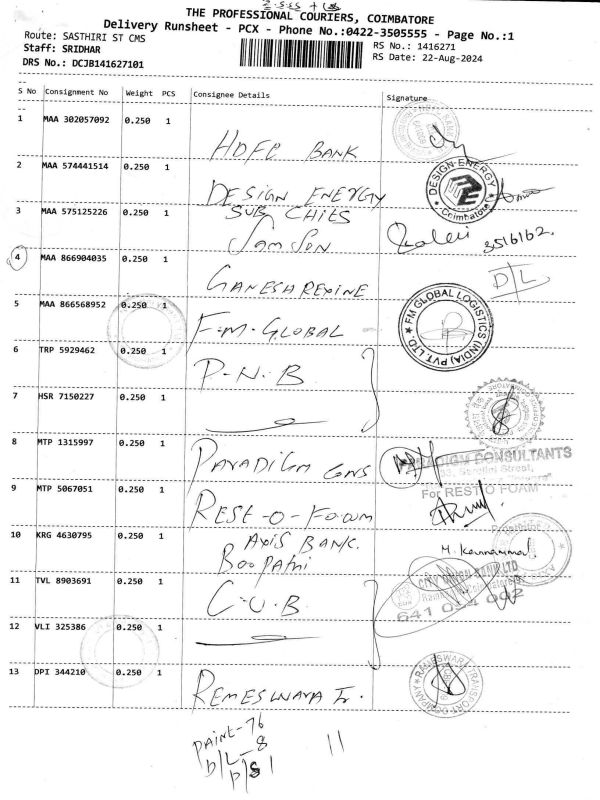 THE PROFESSIONAL COURIERS, COIMBATORE
Delivery Runsheet - PCX - Phone No.:0422-3505555 - Page No.:1
Route: SASTHIRI ST CMS
Staff: SRIDHAR
DRS No.: DCJB141627101
RS No.: 1416271
RS Date: 22-Aug-2024
S No Consignment No Weight PCS Consignee Details Signature
1 MAA 302057092 0.250 1
HDFC BANK
2 MAA 574441514 0.250 1
DESIGN ENERGY
DESIGN ENERGY Coimbatore
3 MAA 575125226 0.250 1
SUB CHIES
SamSon
3516162.
4 MAA 866904035 0.250 1
GANESH REXINE
D/L
5 MAA 866568952 0.250 1
F.M. GLOBAL
FM GLOBAL LOGISTICS (INDIA) PVT. LTD.
6 TRP 5929462 0.250 1
P.N.B
7 HSR 7150227 0.250 1
8 MTP 1315997 0.250 1
PARADIGM CONS
PARADIGM CONSULTANTS
9 MTP 5067051 0.250 1
REST-O-Foam
For REST O FOAM
10 KRG 4630795 0.250 1
AXIS BANK.
Boopathi
M. Kannammal
11 TVL 8903691 0.250 1
C.U.B
CITY UNION BANK LTD
641 002
12 VLI 325386 0.250 1
13 DPI 344210 0.250 1
REMESWARA Tr.
RAMESWARA TRANSPORT COMPANY
PAINT-76
D/L-8
P/S 1
11